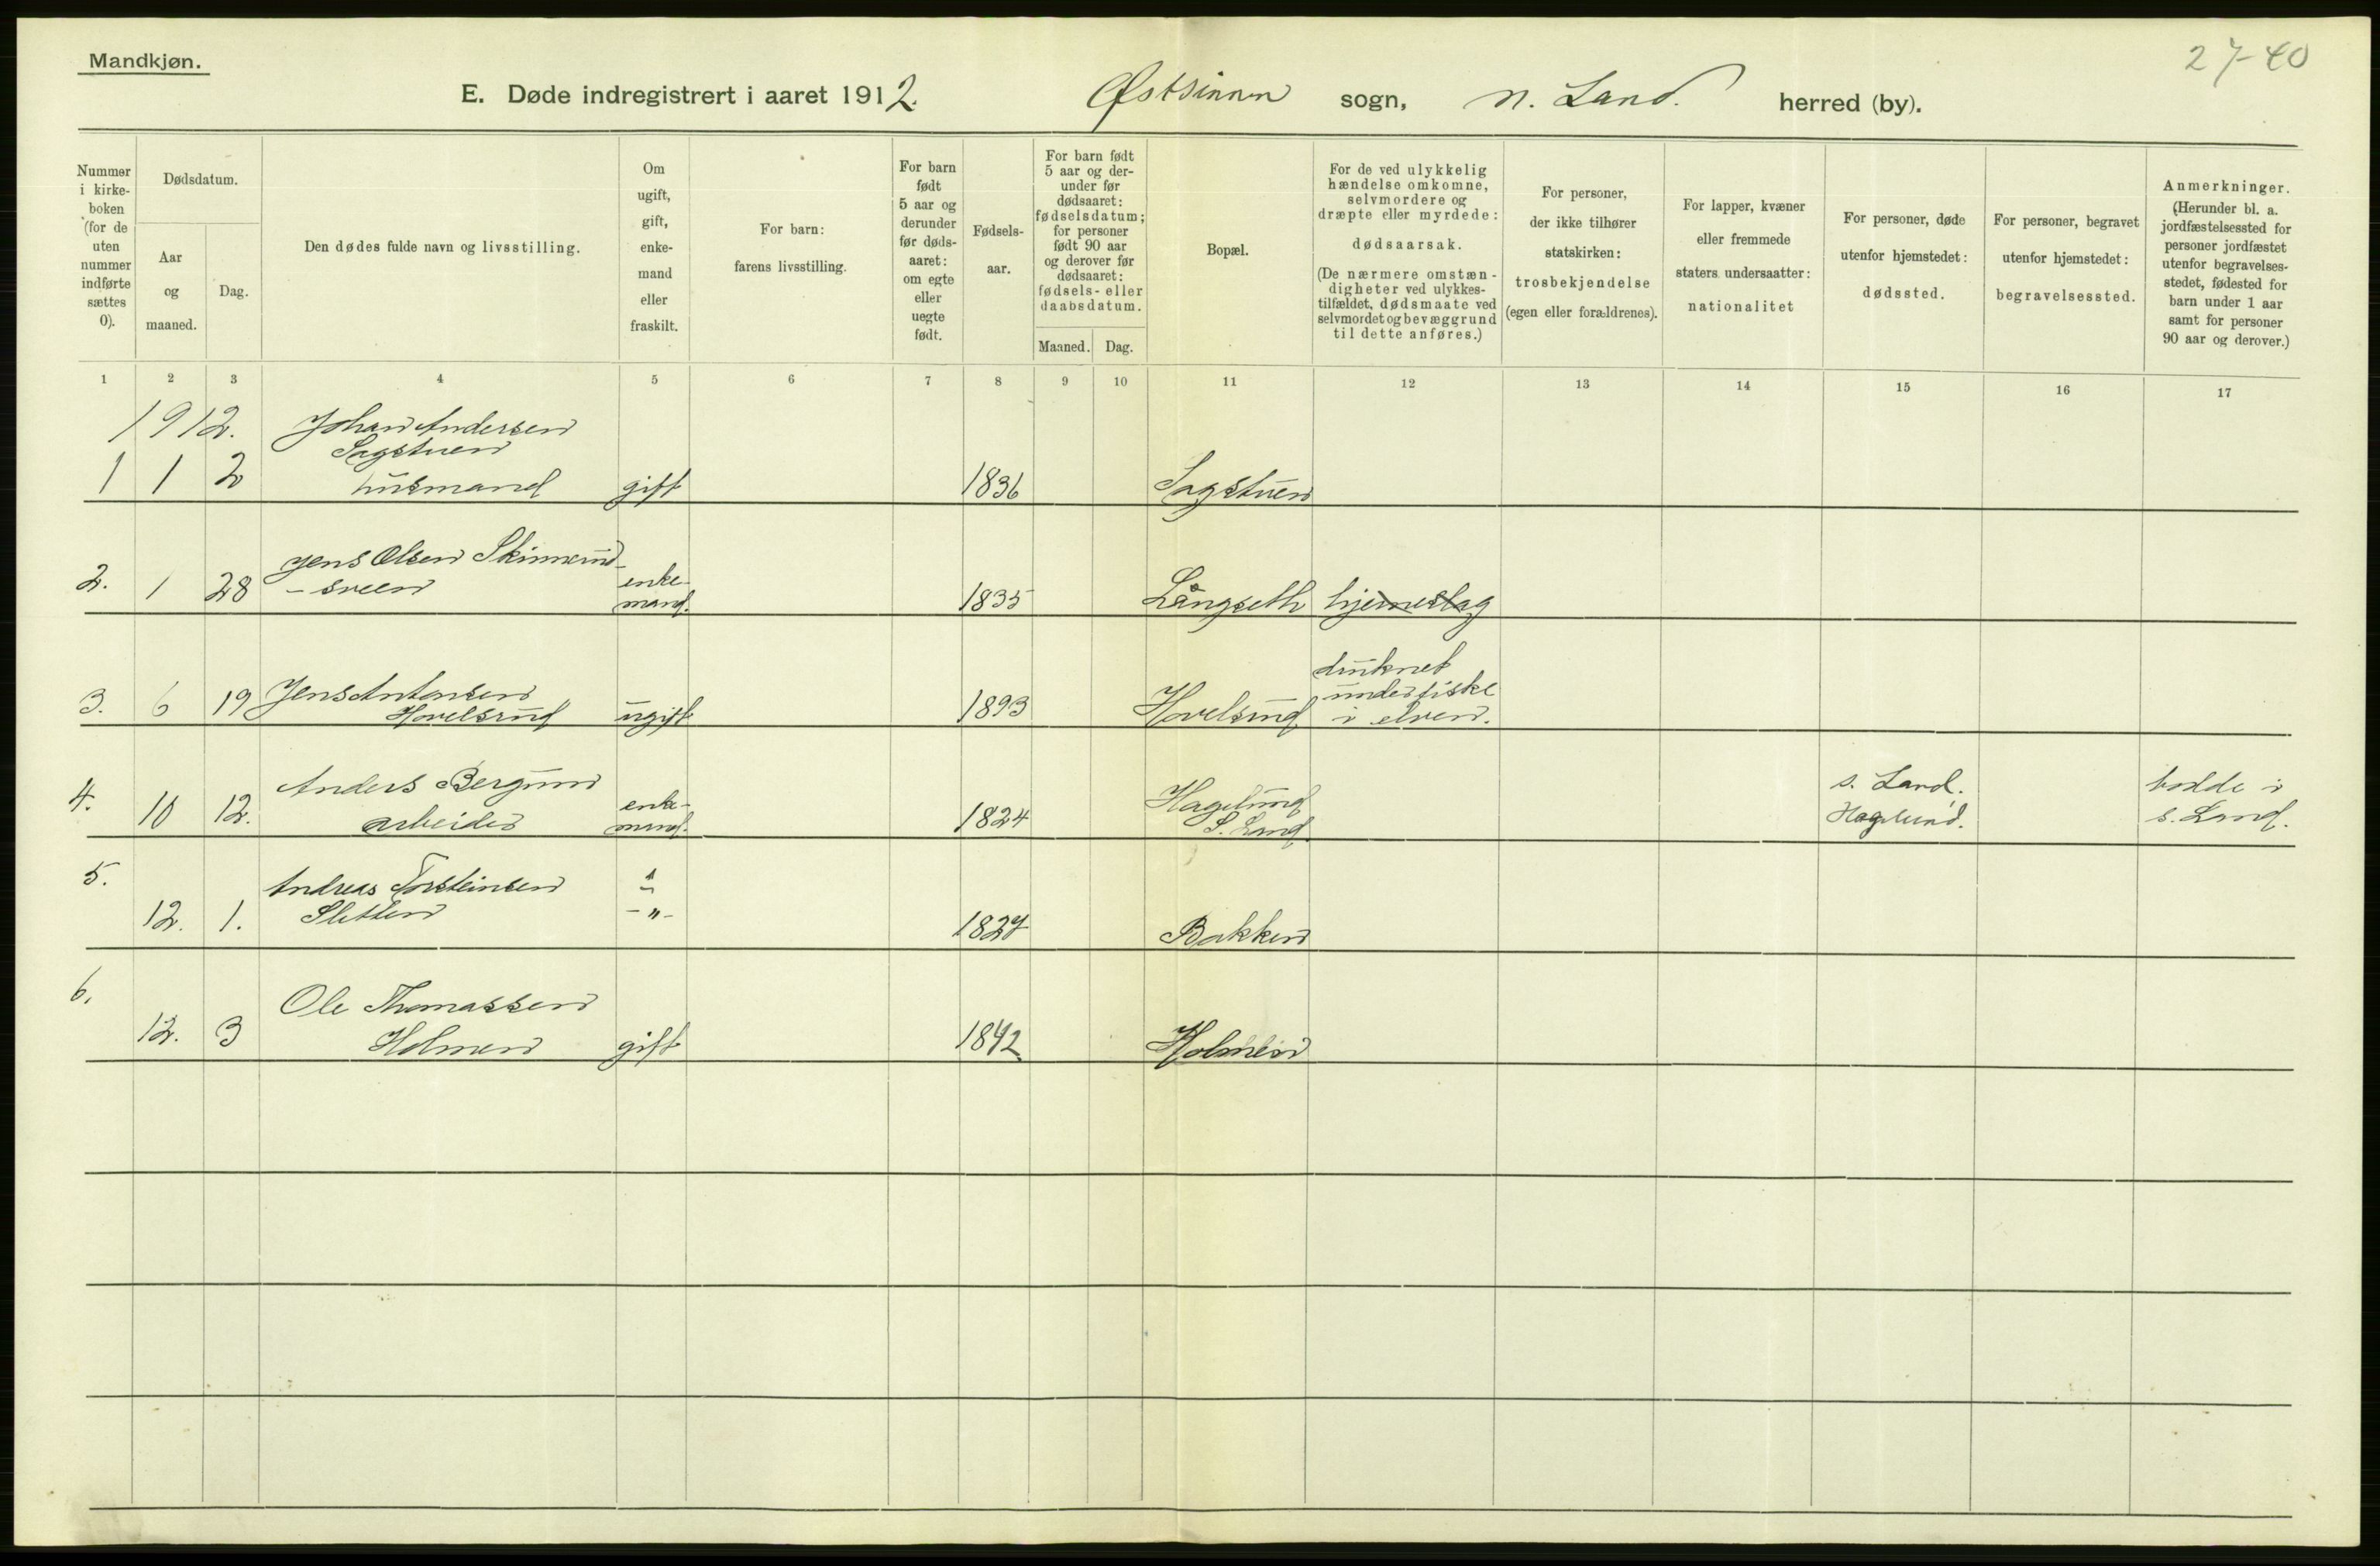 Mandkjøn.
27-40
E. Døde indregistrert i aaret 1912. Østsinnen sogn, N. Land. herred (by).
Nummer
i kirke-
boken
(for de
uten
nummer
indførte
sættes
0).
Dødsdatum.
Aar
og
maaned.
Dag.
Den dødes fulde navn og livsstilling.
Om
ugift,
gift,
enke-
mand
eller
fraskilt.
For barn:
farens livsstilling.
For barn
født
5 aar og
derunder
før døds-
aaret:
om egte
eller
uegte
født.
Fødsels-
aar.
For barn født
5 aar og der-
under før
dødsaaret:
fødselsdatum;
for personer
født 90 aar
og derover før
dødsaaret:
fødsels- eller
daabsdatum.
Maaned. Dag.
Bopæl.
For de ved ulykkelig
hændelse omkomne,
selvmordere og
dræpte eller myrdede:
dødsaarsak.
(De nærmere omstæn-
digheter ved ulykkes-
tilfældet, dødsmaate ved
selvmordet og bevæggrund
til dette anføres.)
For personer,
der ikke tilhører
statskirken:
trosbekjendelse
(egen eller forældrenes).
For lapper, kvæner
eller fremmede
staters undersaatter:
nationalitet
For personer, døde
utenfor hjemstedet:
dødssted.
For personer, begravet
utenfor hjemstedet:
begravelsessted.
Anmerkninger.
(Herunder bl. a.
jordfæstelsessted for
personer jordfæstet
utenfor begravelses-
stedet, fødested for
barn under 1 aar
samt for personer
90 aar og derover.)
1 2 3 4 5 6 7 8 9 10 11 12 13 14 15 16 17
1912. Johan Andersen
Sagstuen
1 1 2 husmand gift 1836 Sagstuen
Jens Olsen Skinnerud-
2. 1 28 -sveen enke-
mand. 1835 Långseth hjerneslag
druknet
under fiske
3. 6 19 Jens Antonsen
Hovelsrud ugift 1893 Hovelsrud i elven.
4. 10 12. Anders Bergum
arbeider enke-
mand. 1824 Hagelund
S. Land s. Land.
Hagelund. bodde i
s. Land.
5. 12. 1. Andreas Torsteinsen
Sletten -"- 1827 Bakken
6. 12. 3 Ole Thomassen
Holmen gift 1842 Holmen